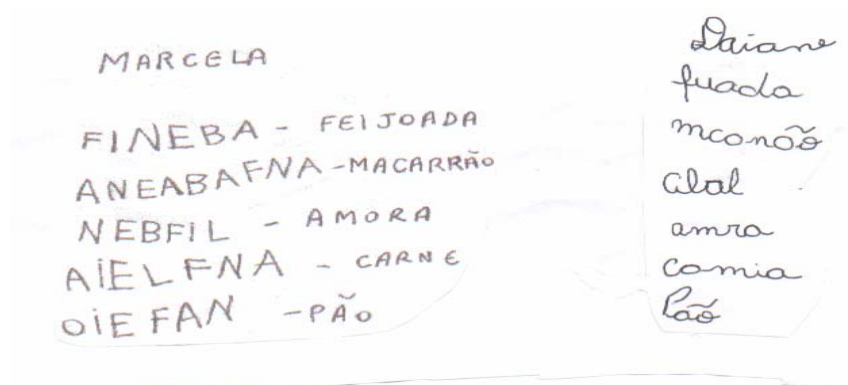 MARCELA
FINEBA - FEIJOADA
ANEABAFNA - MACARRÃO
NEBFIL - AMORA
AIELFNA - CARNE
OIEFAN - PÃO
Daiane
fuada
mconõõ
alal
amra
camia
Pãõ